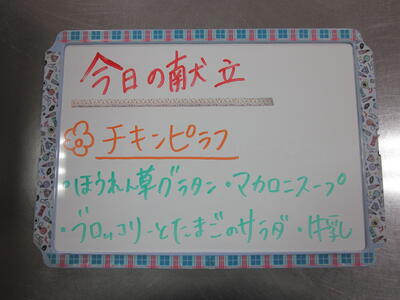 今日の献立
チキンピラフ
・ほうれん草グラタン・マカロニスープ
・ブロッコリーとたまごのサラダ・牛乳